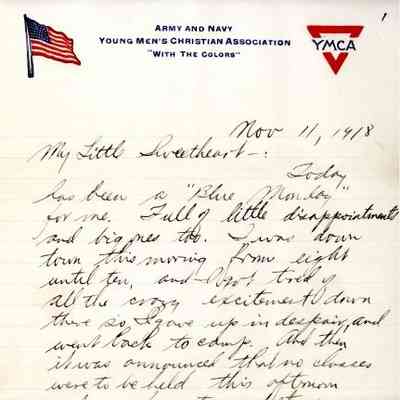 1
ARMY AND NAVY
YOUNG MEN'S CHRISTIAN ASSOCIATION
"WITH THE COLORS"
YMCA
Nov 11, 1918
My Little Sweetheart-:
Today
has been a "Blue Monday"
for me. Full of little disappointments
and big ones too. I was down
town this morning from eight
until ten, and I got tired of
all the crazy excitement down
there so I gave up in despair, and
went back to camp. And then
it was announced that no classes
were to be held this afternoon